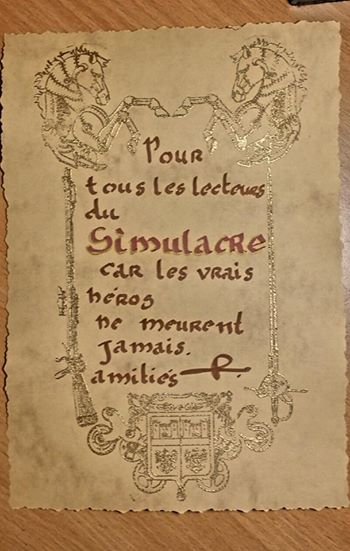 Pour
tous les lecteurs
du
Simulacre
car les vrais
héros
ne meurent
jamais.
amitiés R.